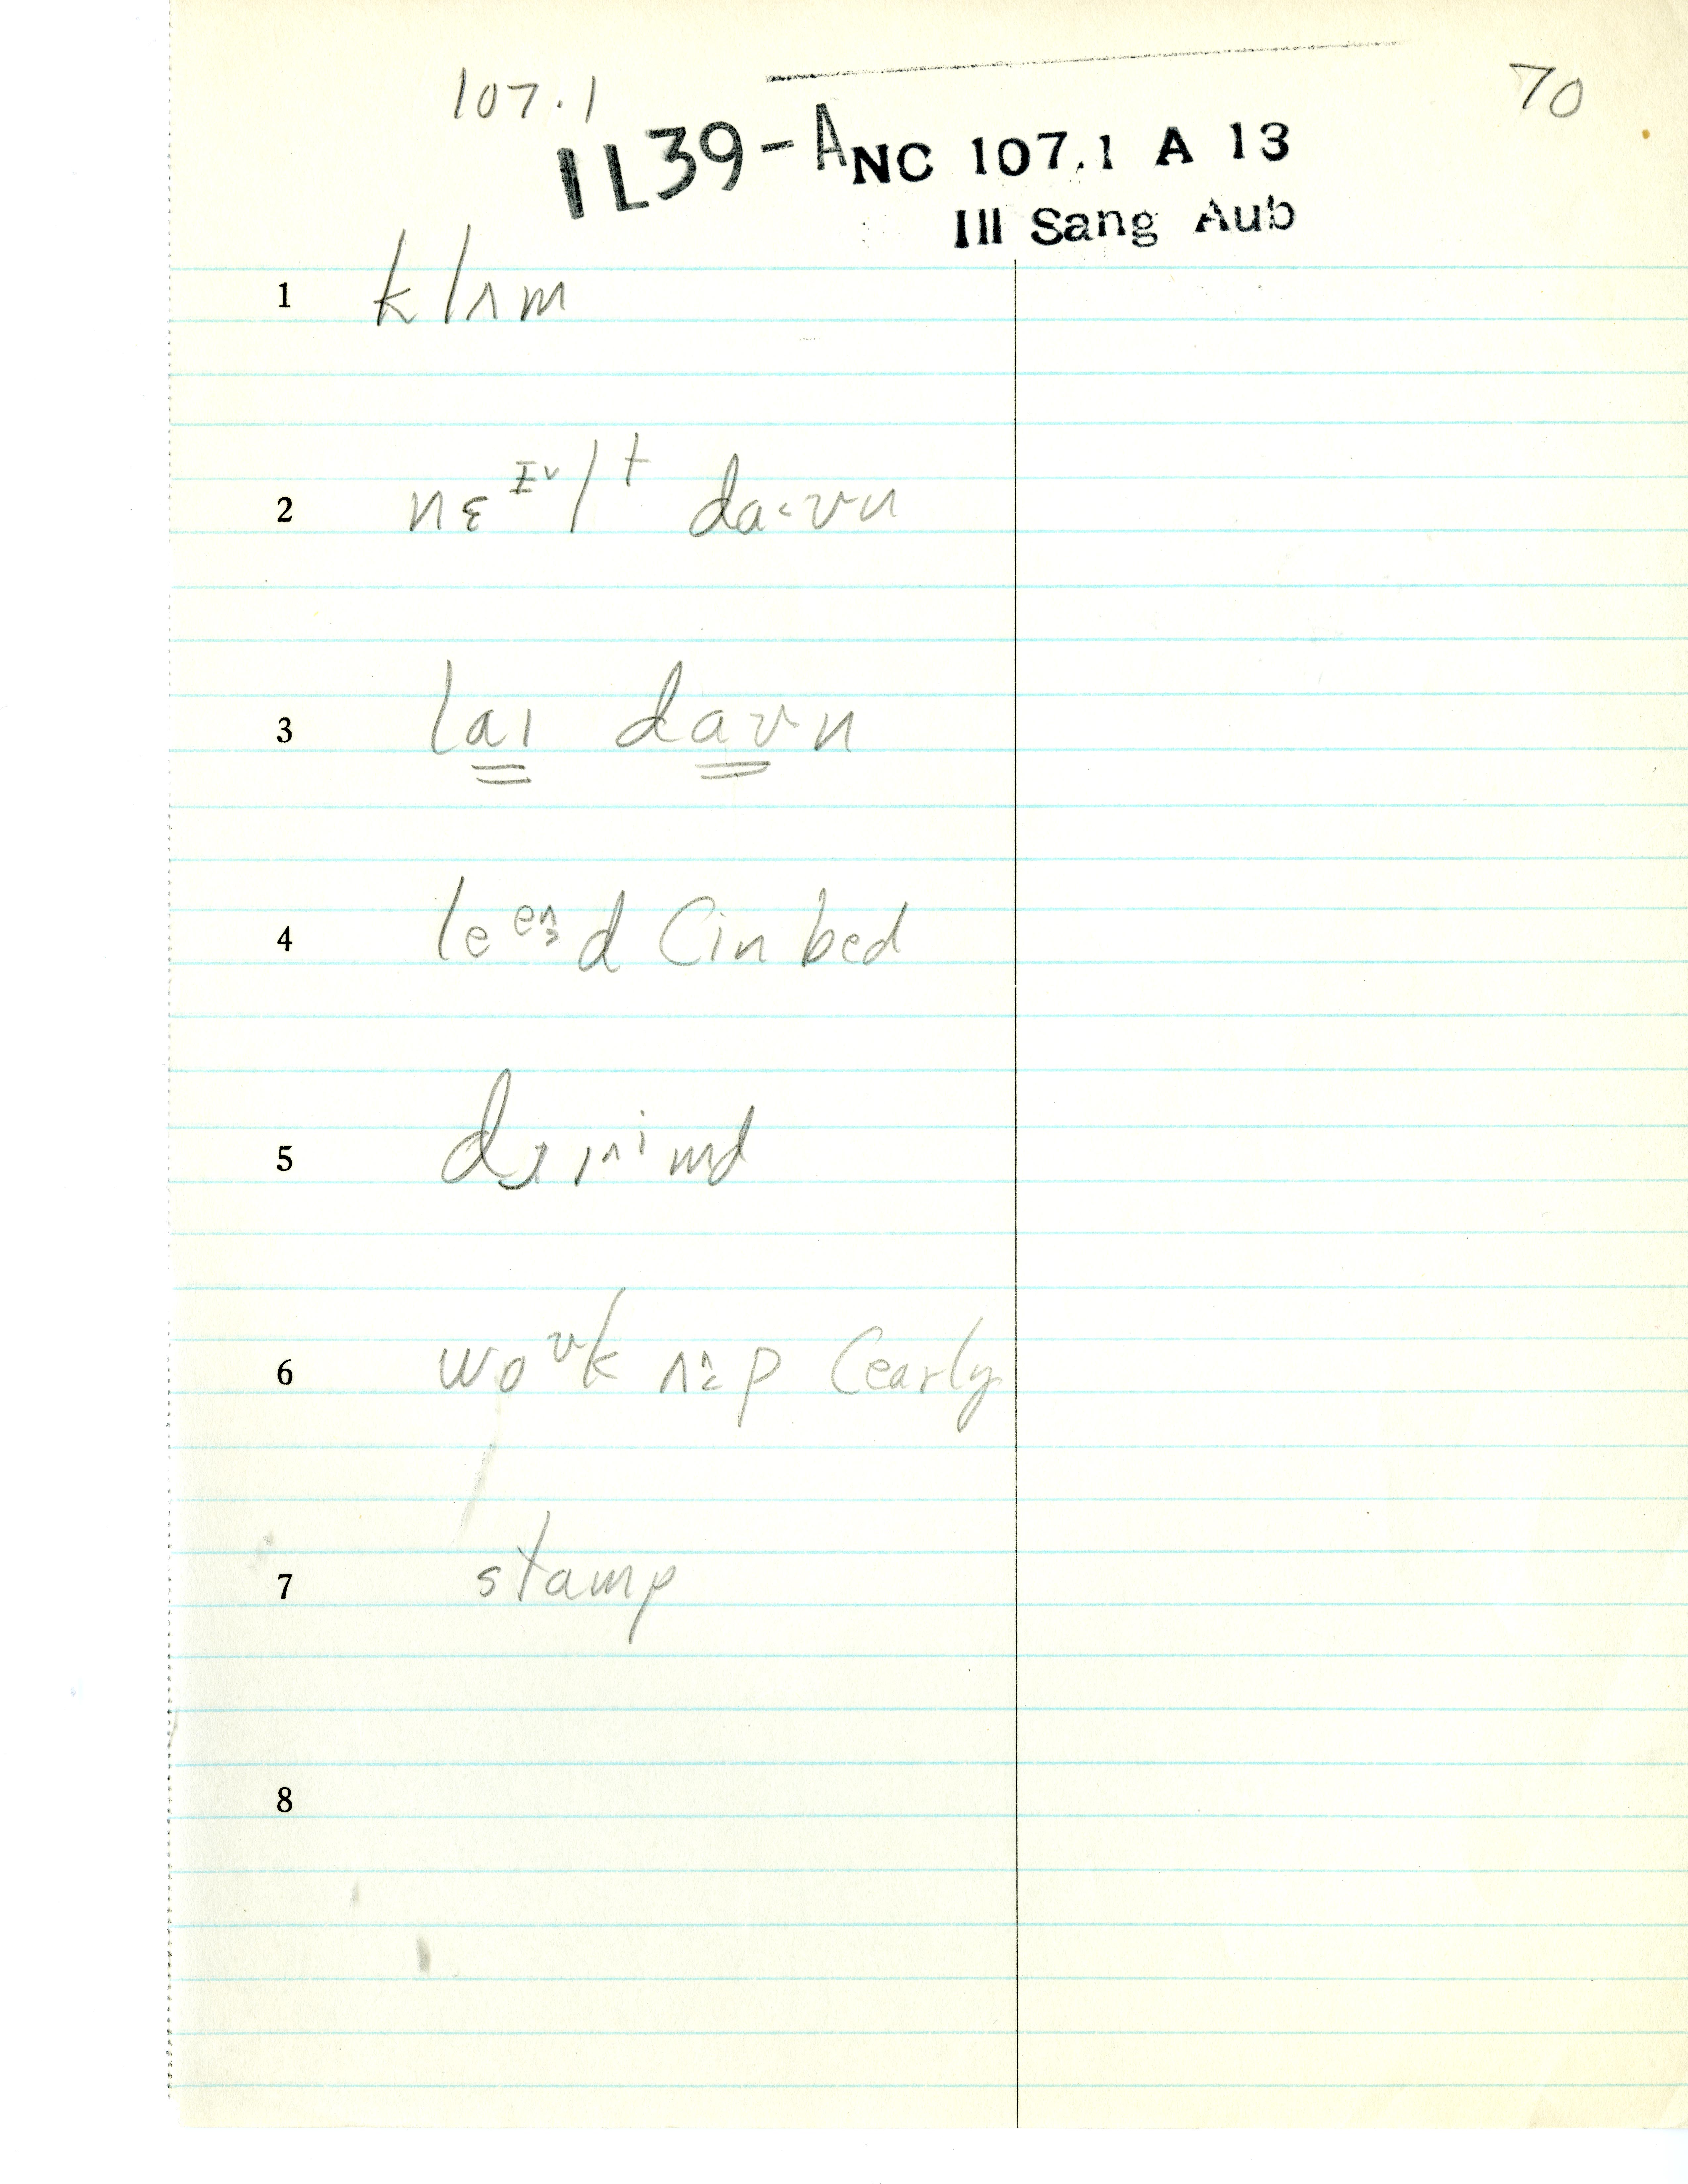 107.1
70
IL39-A
NC 107.1 A 13
Ill Sang Aub
1 klʌm
2 nɛɪᵛlt da‹ʊn
3 laɪ daʊn
4 le d (in bed
5 d md
6 woᶷk ʌ:p (early
7 stamp
8